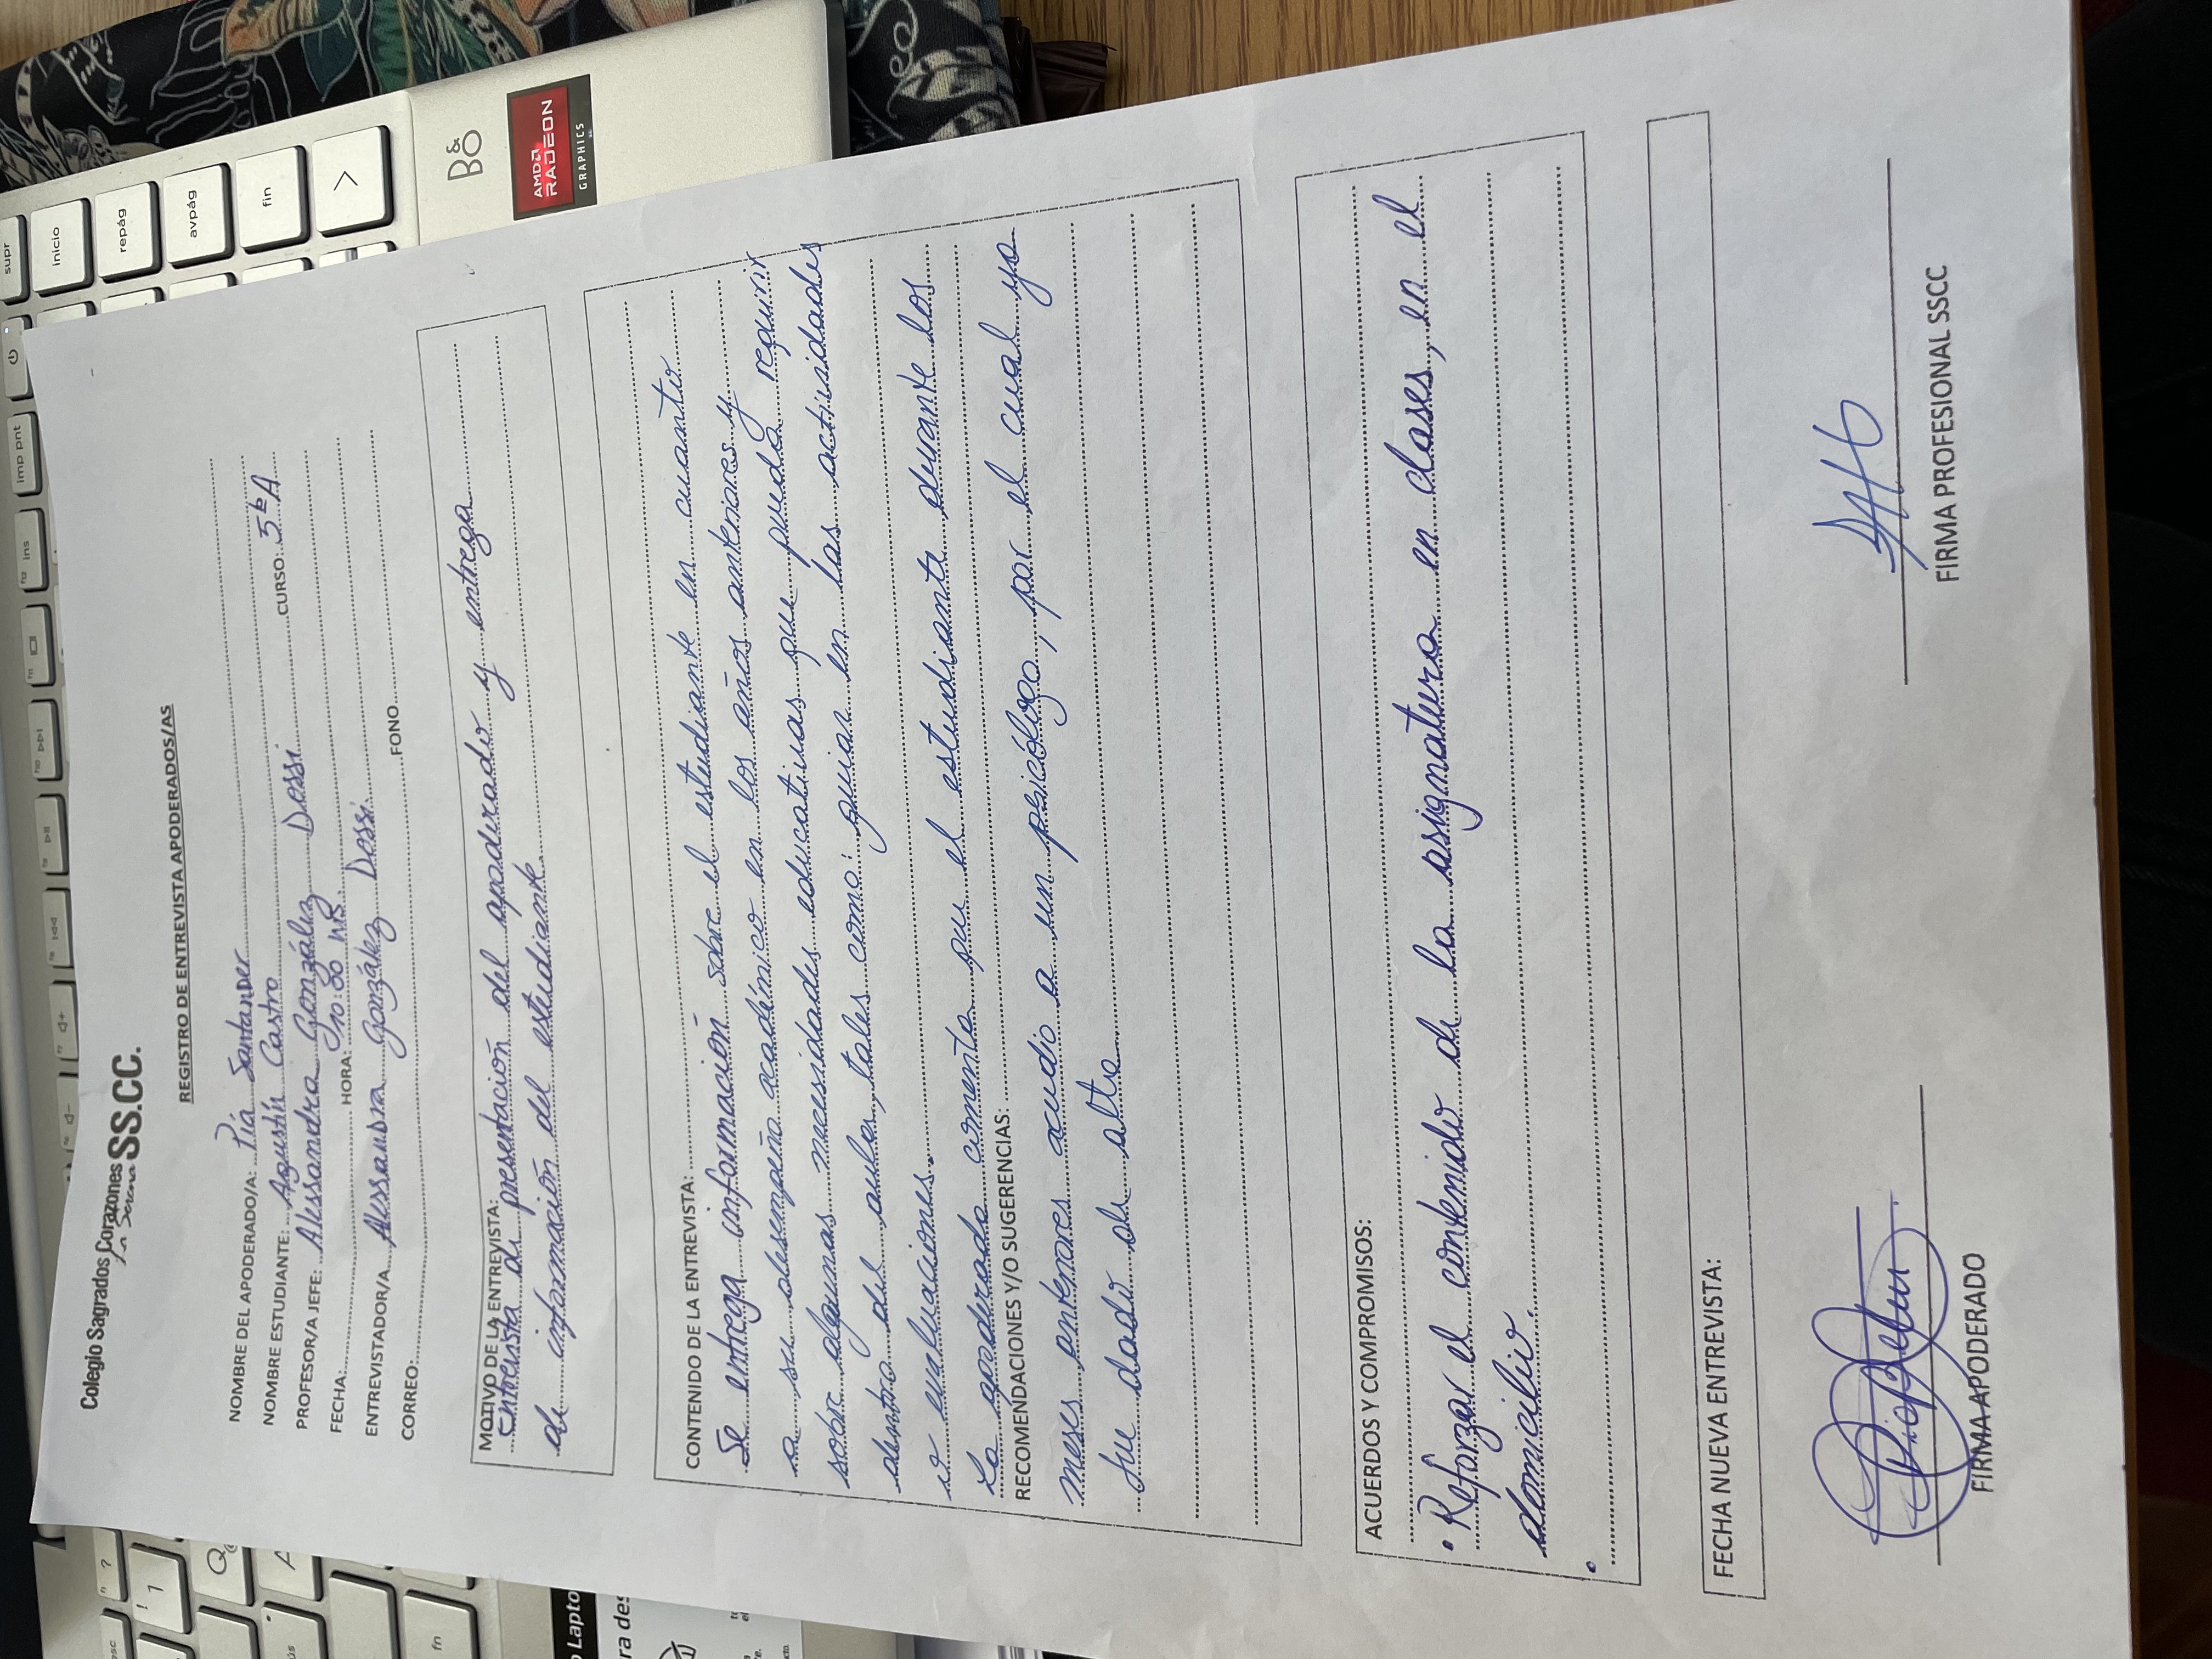 Colegio Sagrados Corazones SS.CC.
La Serena
REGISTRO DE ENTREVISTA APODERADOS/AS
NOMBRE DEL APODERADO/A: Pía Santander
NOMBRE ESTUDIANTE: Agustín Castro CURSO: 5ºA
PROFESOR/A JEFE: Alessandra González Dossi
FECHA: HORA: 10:00 hrs.
ENTREVISTADOR/A Alessandra González Dossi.
CORREO: FONO
MOTIVO DE LA ENTREVISTA:
Entrevista de presentación del apoderado y entrega
de información del estudiante.
CONTENIDO DE LA ENTREVISTA:
Se entrega información sobre el estudiante en cuanto
a su desempeño académico en los años anteriores y
sobre algunas necesidades educativas que pueda requirir
dentro del aula, tales como: guiar en las actividades
o evaluaciones.
La apoderada comenta que el estudiante durante los
RECOMENDACIONES Y/O SUGERENCIAS:
meses anteriores acudio a un psicólogo, por el cual ya
fue dado de alta
ACUERDOS Y COMPROMISOS:
• Reforzar el contenido de la asignatura en clases, en el
domicilio.
•
FECHA NUEVA ENTREVISTA:
FIRMA APODERADO
FIRMA PROFESIONAL SSCC
supr
inicio
repág
avpág
fin
imp pnt
ins
B&O
AMD
RADEON
GRAPHICS
esc
fn